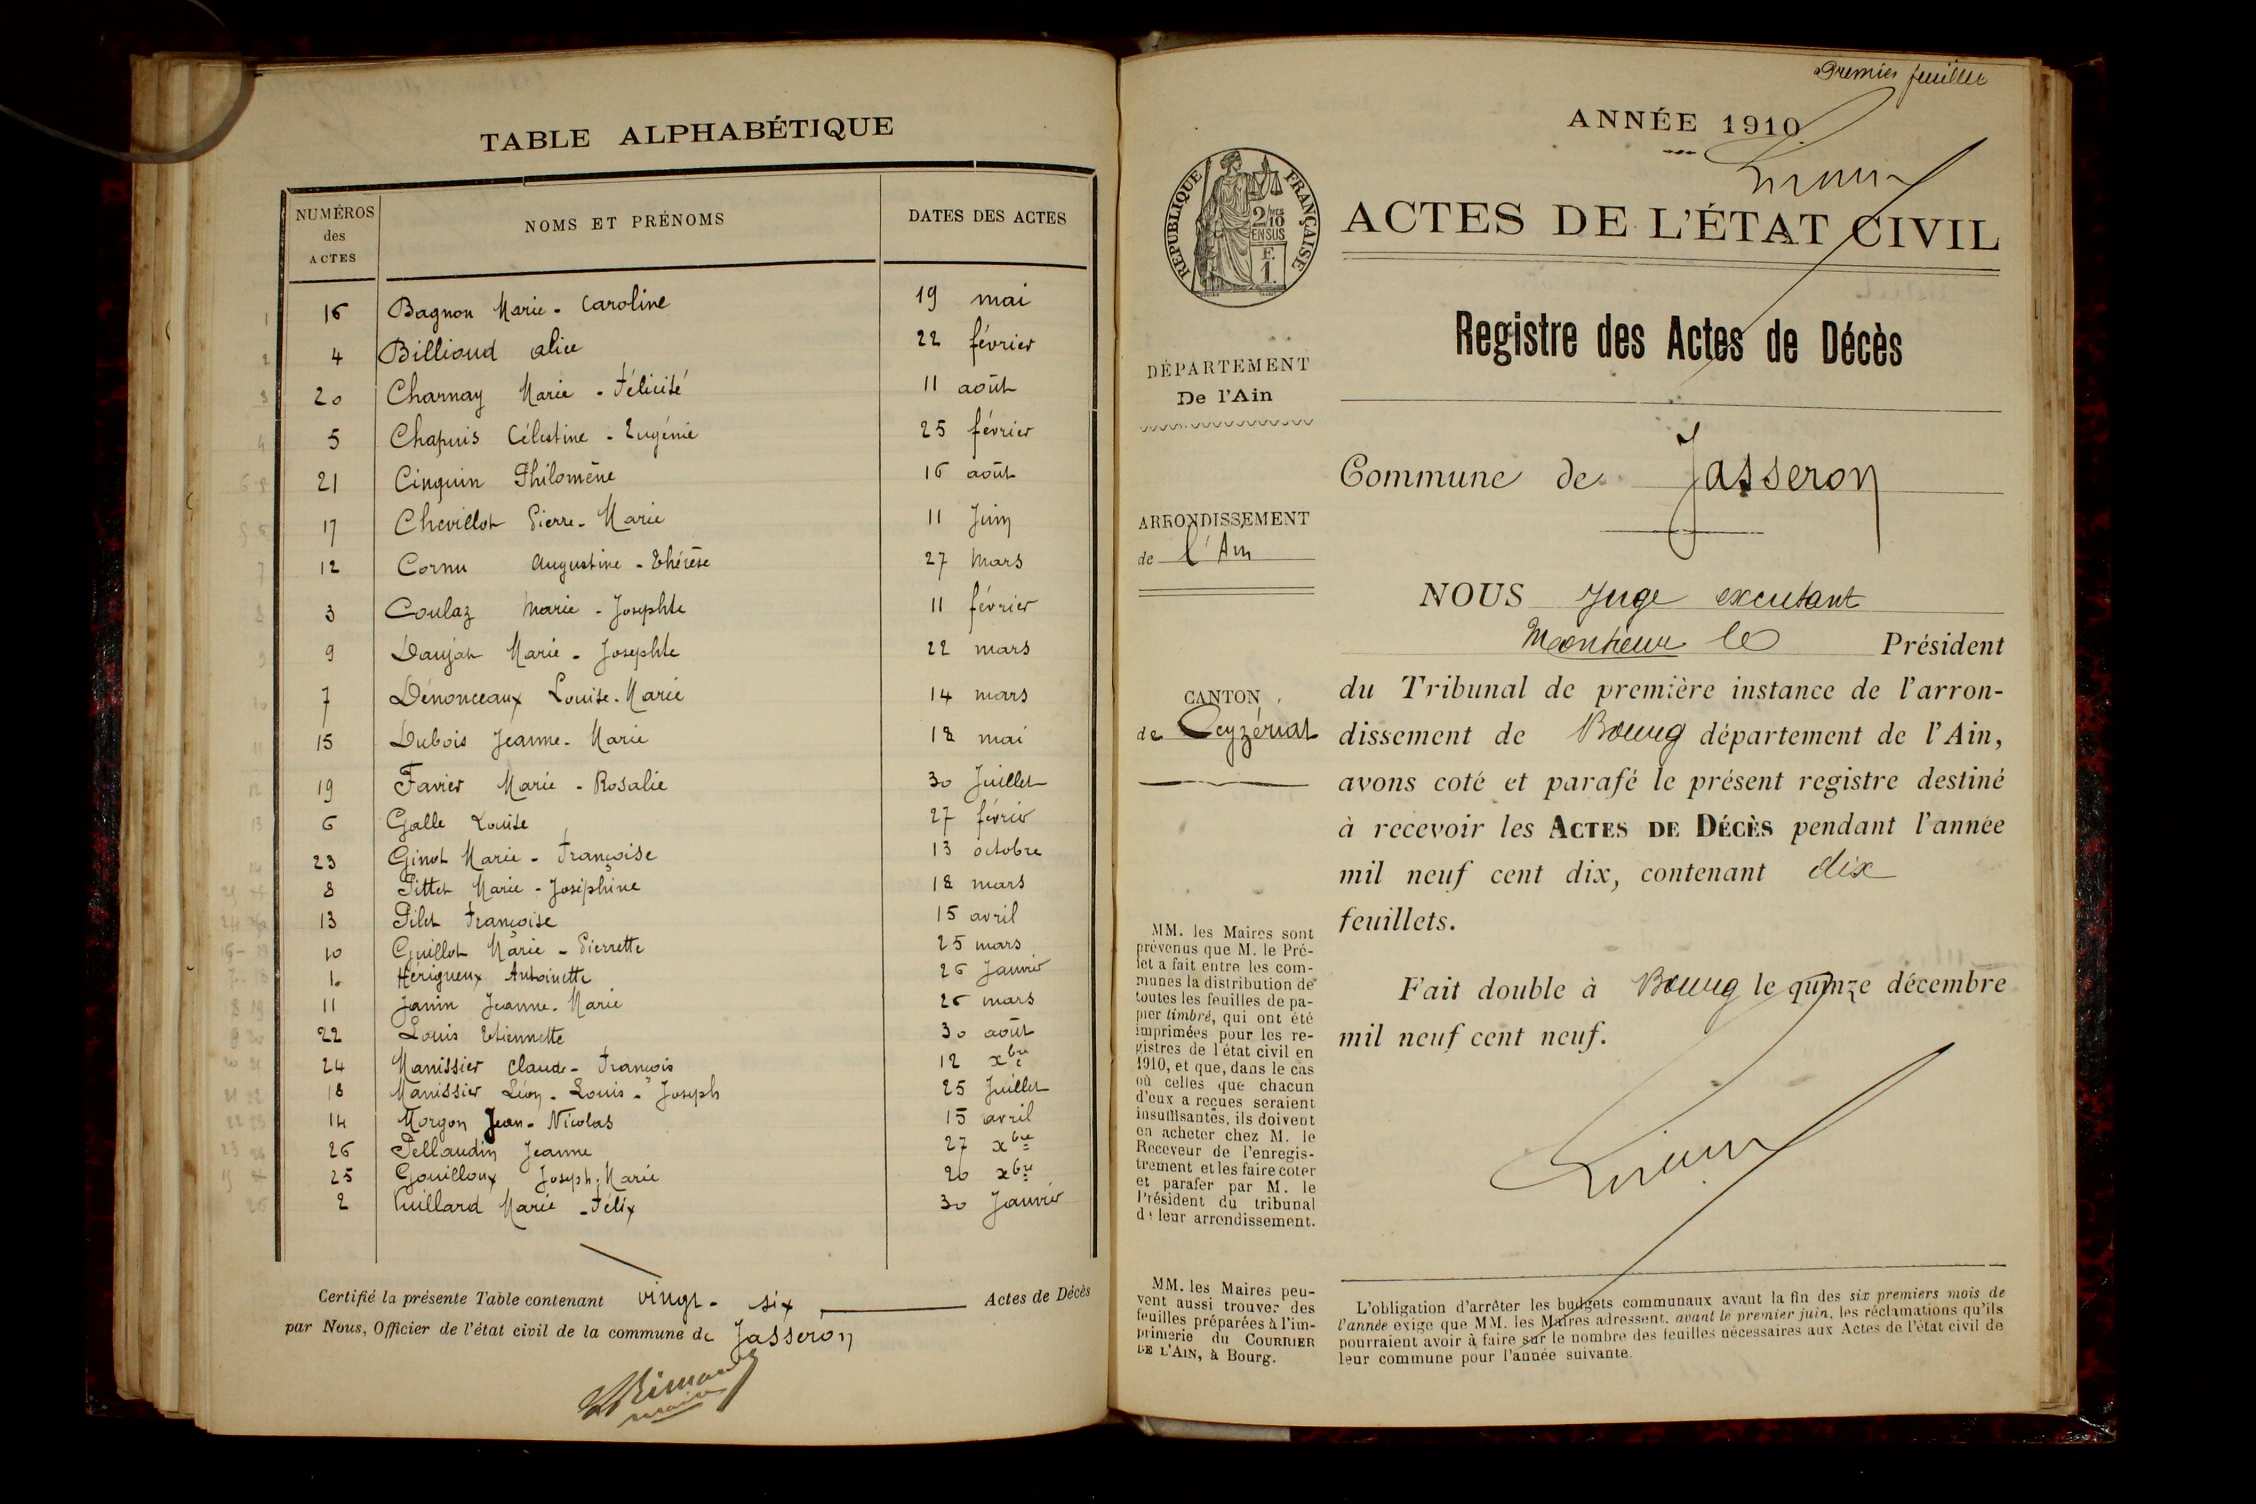 TABLE ALPHABÉTIQUE
NUMÉROS des ACTES NOMS ET PRÉNOMS DATES DES ACTES
16 Bagnon Marie - Caroline 19 mai
4 Billioud Alice 22 février
20 Charnay Marie - Félicité 11 août
5 Chapuis Célestine - Eugénie 25 février
21 Cinquin Philomène 16 août
17 Chevillot Pierre - Marie 11 Juin
12 Cornu Augustine - Thérèse 27 Mars
3 Coulaz Marie - Josephte 11 février
9 Daujat Marie - Josephte 22 mars
7 Dénonceaux Louise - Marie 14 mars
15 Dubois Jeanne - Marie 18 mai
19 Favier Marie - Rosalie 30 Juillet
6 Galle Louise 27 février
23 Ginot Marie - Françoise 13 octobre
8 Pittet Marie - Joséphine 18 mars
13 Pilet Françoise 15 avril
10 Guillot Marie - Pierrette 25 mars
1 Hérigneux Antoinette 26 Janvier
11 Janin Jeanne - Marie 26 mars
22 Louis Etiennette 30 août
24 Manissier Claude - François 12 xbre
18 Manissier Léon - Louis - Joseph 25 Juillet
14 Morgon Jean - Nicolas 15 avril
26 Pellaudin Jeanne 27 xbre
25 Gouilloux Joseph - Marie 20 xbre
2 Vuillard Marie - Félix 30 Janvier
Certifié la présente Table contenant vingt - six Actes de Décès
par Nous, Officier de l'état civil de la commune de Jasseron
Premier feuillet
ANNÉE 1910
RÉPUBLIQUE FRANÇAISE
2/10 EN SUS
F.
1.
ACTES DE L'ÉTAT CIVIL
Registre des Actes de Décès
DÉPARTEMENT
De l'Ain
Commune de Jasseron
ARRONDISSEMENT
de l'Ain
CANTON
de Ceyzériat
NOUS Juge excutant
Monsieur le Président
du Tribunal de première instance de l'arron-
dissement de Bourg département de l'Ain,
avons coté et parafé le présent registre destiné
à recevoir les ACTES DE DÉCÈS pendant l'année
mil neuf cent dix, contenant dix
feuillets.
Fait double à Bourg le quinze décembre
mil neuf cent neuf.
MM. les Maires sont
prévenus que M. le Pré-
fet a fait entre les com-
munes la distribution de
toutes les feuilles de pa-
pier timbré, qui ont été
imprimées pour les re-
gistres de l'état civil en
1910, et que, dans le cas
où celles que chacun
d'eux a reçues seraient
insuffisantes, ils doivent
en acheter chez M. le
Receveur de l'enregis-
trement et les faire coter
et parafer par M. le
Président du tribunal
de leur arrondissement.
MM. les Maires peu-
vent aussi trouver des
feuilles préparées à l'im-
primerie du COURRIER
DE L'AIN, à Bourg.
L'obligation d'arrêter les budgets communaux avant la fin des six premiers mois de
l'année exige que MM. les Maires adressent, avant le premier juin, les réclamations qu'ils
pourraient avoir à faire sur le nombre des feuilles nécessaires aux Actes de l'état civil de
leur commune pour l'année suivante.